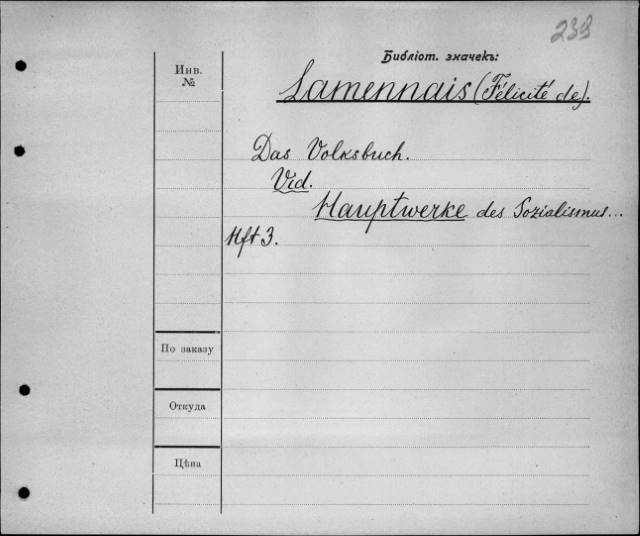 239
Библіот. значекъ:
Инв.
№
Lamennais (Félicité de).
Das Volksbuch.
Vid.
Hauptwerke des Sozialismus...
Hft 3.
По заказу
Откуда
Цѣна